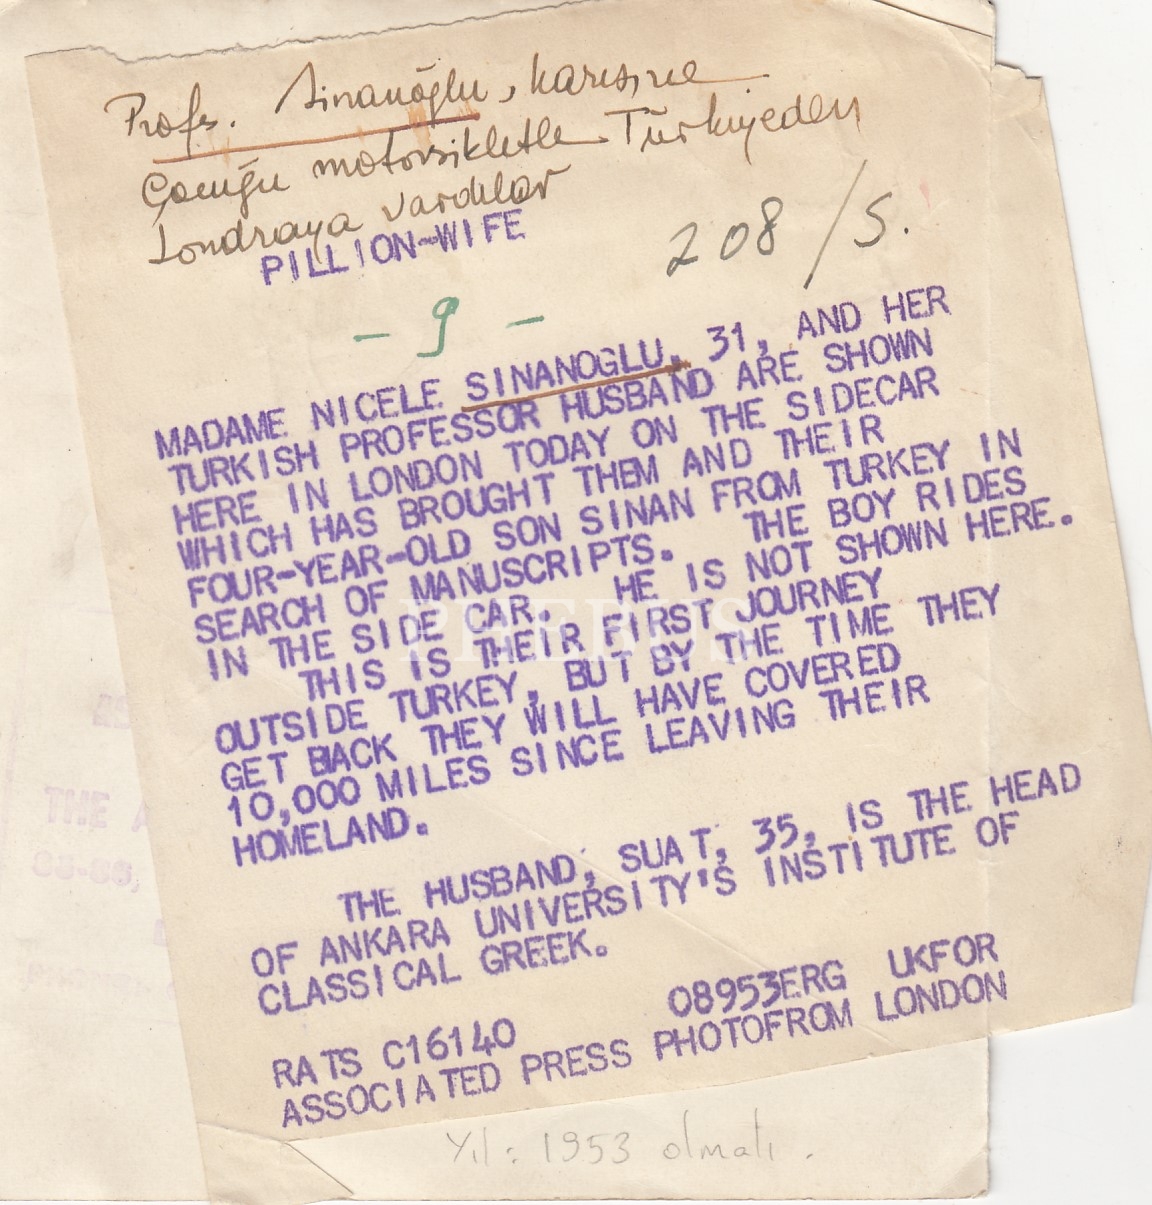 Profs. Sinanoğlu, karısı ve
Çocuğu motorsikletle Türkiyeden
Londraya vardılar
PILLION-WIFE
208/S.
- 9 -
MADAME NICELE SINANOGLU, 31, AND HER
TURKISH PROFESSOR HUSBAND ARE SHOWN
HERE IN LONDON TODAY ON THE SIDECAR
WHICH HAS BROUGHT THEM AND THEIR
FOUR-YEAR-OLD SON SINAN FROM TURKEY IN
SEARCH OF MANUSCRIPTS. THE BOY RIDES
IN THE SIDE CAR. HE IS NOT SHOWN HERE.
THIS IS THEIR FIRST JOURNEY
OUTSIDE TURKEY, BUT BY THE TIME THEY
GET BACK THEY WILL HAVE COVERED
10,000 MILES SINCE LEAVING THEIR
HOMELAND.
THE HUSBAND, SUAT, 35, IS THE HEAD
OF ANKARA UNIVERSITY'S INSTITUTE OF
CLASSICAL GREEK.
08953ERG UKFOR
RATS C16140
ASSOCIATED PRESS PHOTOFROM LONDON
Yıl: 1953 olmalı.
PHEBUS
THE A